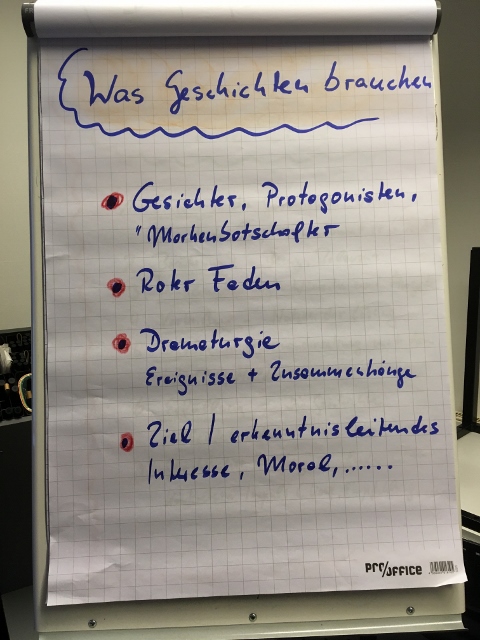 Was Geschichten brauchen
Gesichter, Protagonisten,
"Markenbotschafter
Roter Faden
Dramaturgie
Ereignisse + Zusammenhänge
Ziel / erkenntnisleitendes
Interesse, Moral,......
PRO/OFFICE